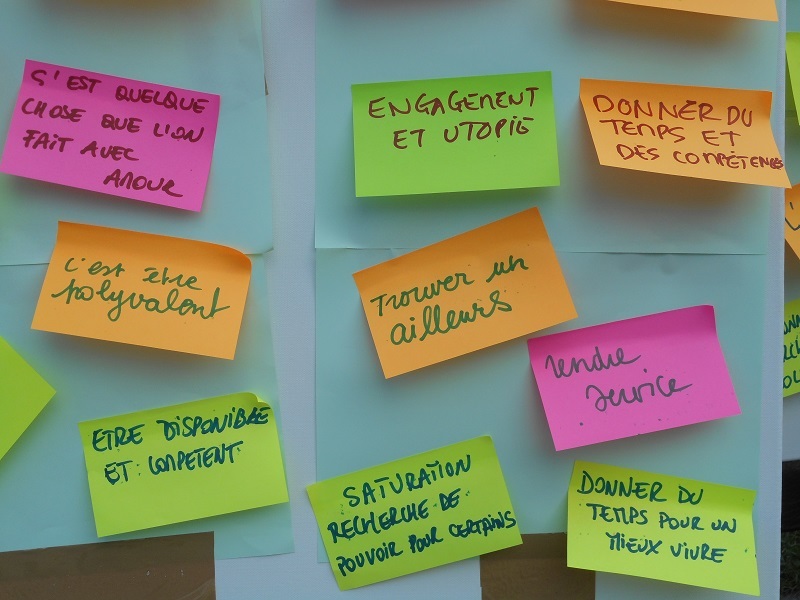 S'EST QUELQUE
CHOSE QUE L'ON
FAIT AVEC
AMOUR
ENGAGEMENT
ET UTOPIE
DONNER DU
TEMPS ET
DES COMPÉTENCES
c'est être
polyvalent
Trouver un
ailleurs
rendre
service
ETRE DISPONIBLE
ET COMPETENT
SATURATION
RECHERCHE DE
POUVOIR POUR CERTAINS
DONNER DU
TEMPS POUR UN
MIEUX VIVRE